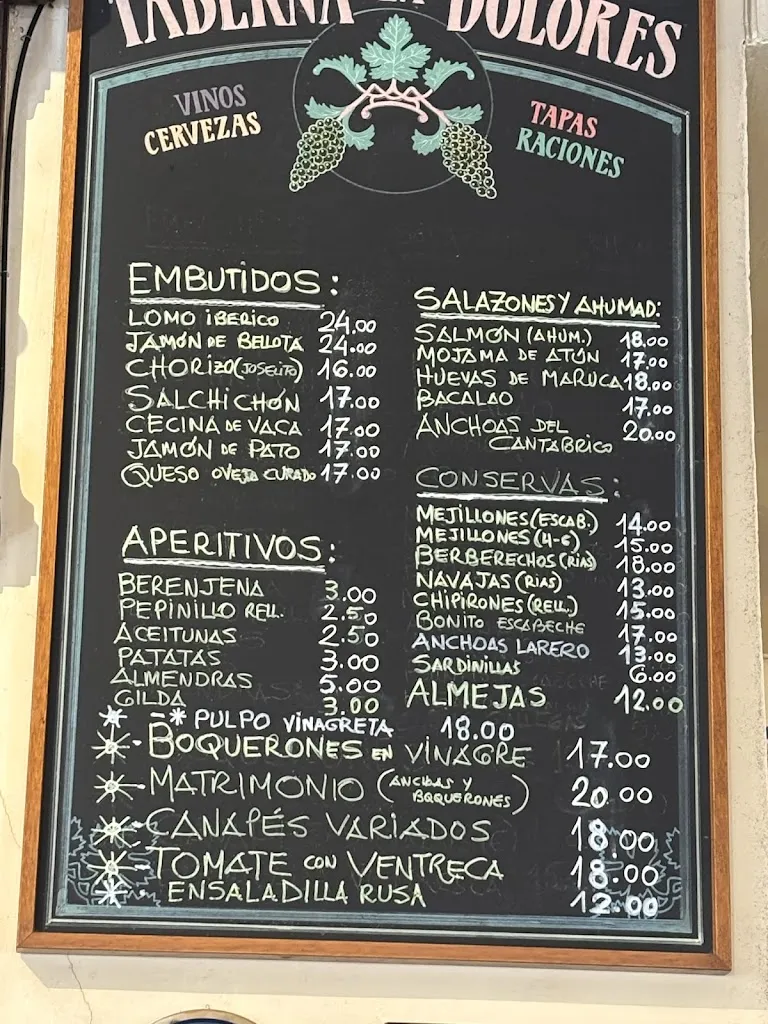 TABERNA LA DOLORES
VINOS
CERVEZAS
TAPAS
RACIONES
EMBUTIDOS:
LOMO IBERICO 24.00
JAMÓN DE BELLOTA 24.00
CHORIZO (JOSELITO) 16.00
SALCHICHÓN 17.00
CECINA DE VACA 17.00
JAMÓN DE PATO 17.00
QUESO OVEJA CURADO 17.00
APERITIVOS:
BERENJENA 3.00
PEPINILLO RELL. 2.50
ACEITUNAS 2.50
PATATAS 3.00
ALMENDRAS 5.00
GILDA 3.00
SALAZONES Y AHUMAD:
SALMÓN (AHUM.) 18.00
MOJAMA DE ATÚN 17.00
HUEVAS DE MARUCA 18.00
BACALAO 17.00
ANCHOAS DEL 20.00
CANTABRICO
CONSERVAS:
MEJILLONES (ESCAB.) 14.00
MEJILLONES (4-6) 15.00
BERBERECHOS (RIAS) 18.00
NAVAJAS (RIAS) 13.00
CHIPIRONES (RELL.) 15.00
BONITO ESCABECHE 17.00
ANCHOAS LARERO 13.00
SARDINILLAS 6.00
ALMEJAS 12.00
PULPO VINAGRETA 18.00
BOQUERONES EN VINAGRE 17.00
MATRIMONIO (ANCHOAS Y BOQUERONES) 20.00
CANAPÉS VARIADOS 18.00
TOMATE CON VENTRECA 18.00
ENSALADILLA RUSA 12.00